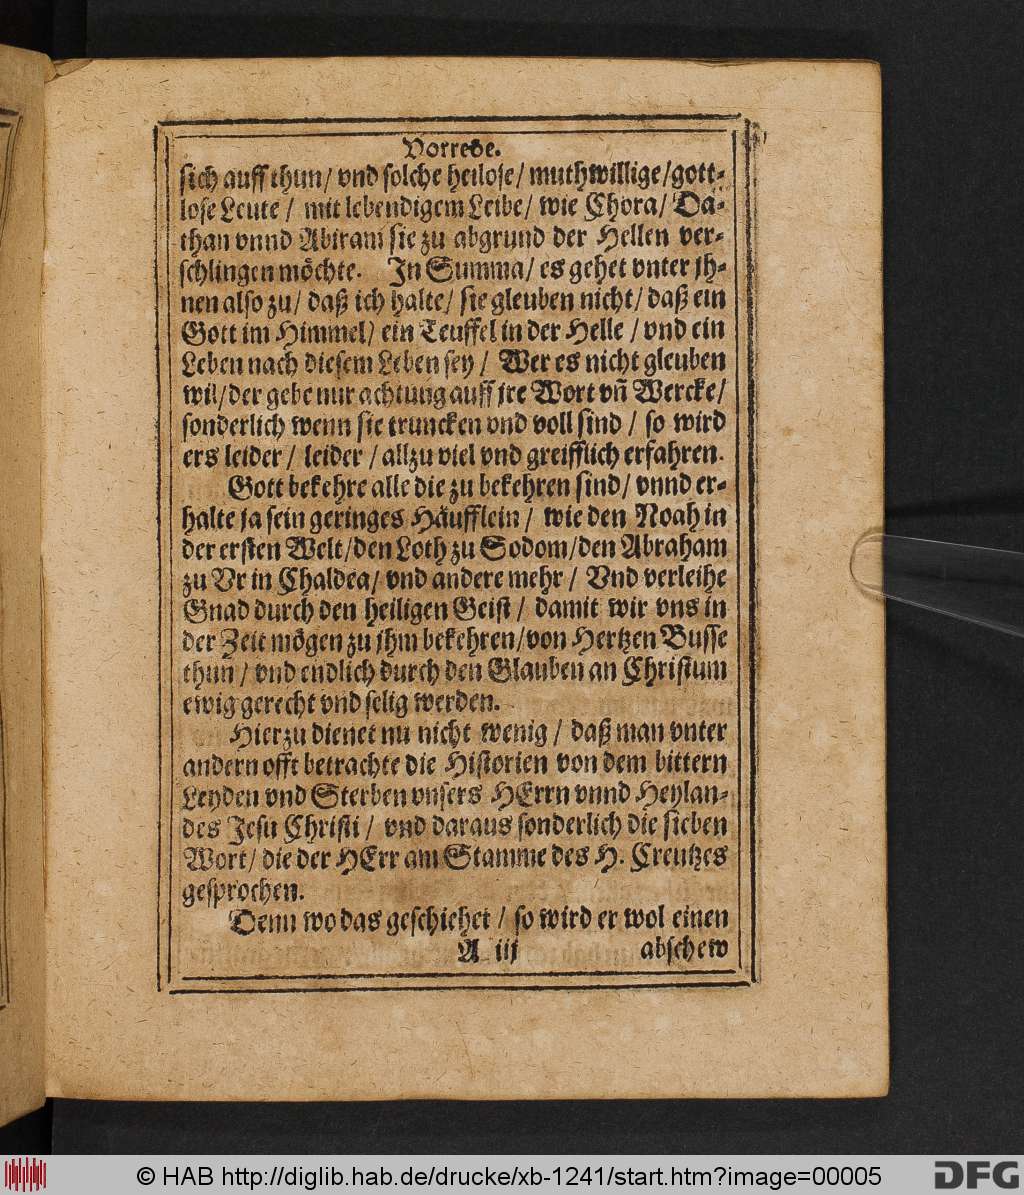 Vorrede.
sich auff thun/ vnd solche heilose/ muthwillige/gott-
lose Leute/ mit lebendigem Leibe/ wie Chora/ Da-
than vnnd Abiram sie zu abgrund der Hellen ver-
schlingen möchte. In Summa/ es gehet vnter jh-
nen also zu/ daß ich halte/ sie gleuben nicht/ daß ein
Gott im Himmel/ ein Teuffel in der Helle/ vnd ein
Leben nach diesem Leben sey/ Wer es nicht gleuben
wil/der gebe nur achtung auff jre Wort vñ Wercke/
sonderlich wenn sie truncken vnd voll sind/ so wird
ers leider/ leider/ allzu viel vnd greifflich erfahren.
Gott bekehre alle die zu bekehren sind/ vnnd er-
halte ja sein geringes Häufflein/ wie den Noah in
der ersten Welt/den Loth zu Sodom/den Abraham
zu Vr in Chaldea/ vnd andere mehr/ Vnd verleihe
Gnad durch den heiligen Geist/ damit wir vns in
der Zeit mögen zu jhm bekehren/von Hertzen Busse
thun/ vnd endlich durch den Glauben an Christum
ewig gerecht vnd selig werden.
Hierzu dienet nu nicht wenig/ daß man vnter
andern offt betrachte die Historien von dem bittern
Leyden vnd Sterben vnsers HErrn vnnd Heylan-
des Jesu Christi/ vnd daraus sonderlich die sieben
Wort/ die der HErr am Stamme des H. Creutzes
gesprochen.
Denn wo das geschiehet/ so wird er wol einen
A iij abschew
© HAB http://diglib.hab.de/drucke/xb-1241/start.htm?image=00005
DFG